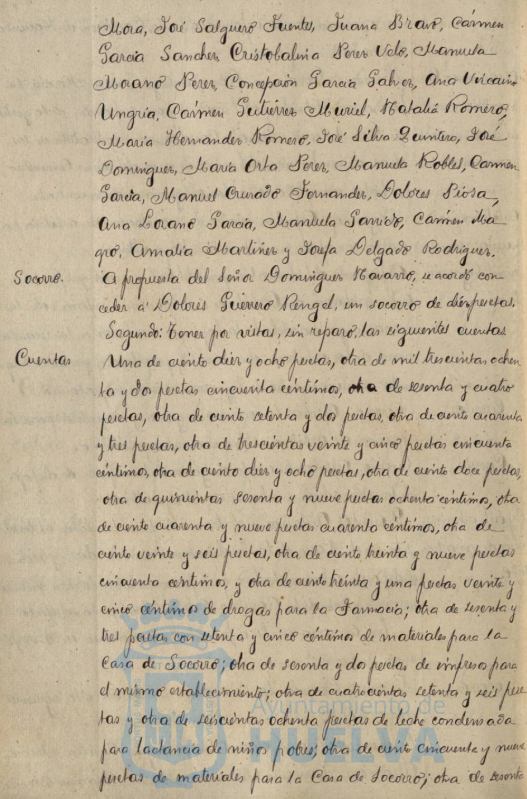 Mora, José Salguero Fuentes, Juana Bravo, Cármen
García Sanchez, Cristobalina Perez Velo, Manuela
Morano Perez, Concepción García Galvez, Ana Vizcaino
Ungria, Cármen Gutiérrez Muriel, Natalia Romero,
María Hernandez Romero, José Silva Quintero, José
Dominguez, María Orta Perez, Manuela Robles, Carmen
García, Manuel Curado Fernandez, Dolores Piosa,
Ana Lozano García, Manuela Garrido, Carmen Ma
gro, Amalia Martinez y Josefa Delgado Rodriguez.
Socorro. A propuesta del Señor Dominguez Navarro, se acordó con
ceder á Dolores Guerrero Rengel, un socorro de diez pesetas.
Segundo: Tener por vistas, sin reparo, las siguientes cuentas
Cuentas Una de ciento diez y ocho pesetas, otra de mil trescientas ochen
ta y dos pesetas cincuenta céntimos, otra de sesenta y cuatro
pesetas, otra de ciento setenta y dos pesetas, otra de ciento cuarenta
y tres pesetas, otra de trescientas veinte y cinco pesetas cincuenta
céntimos, otra de ciento diez y ocho pesetas, otra de ciento doce pesetas,
otra de quinientas sesenta y nueve pesetas ochenta céntimos, otra
de ciento cuarenta y nueve pesetas cuarenta céntimos, otra de
ciento veinte y seis pesetas, otra de ciento treinta y nueve pesetas
cincuenta céntimos, y otra de ciento treinta y una pesetas veinte y
cinco céntimos de drogas para la Farmacia; otra de sesenta y
tres pesetas con setenta y cinco céntimos de materiales para la
Casa de Socorro; otra de sesenta y dos pesetas de impresos para
el mismo establecimiento; otra de cuatrocientas setenta y seis pese
tas y otra de seiscientas ochenta pesetas de leche condensada
para lactancia de niños pobres; otra de ciento cincuenta y nueve
pesetas de materiales para la Casa de Socorro; otra de sesenta
Ayuntamiento de
HUELVA